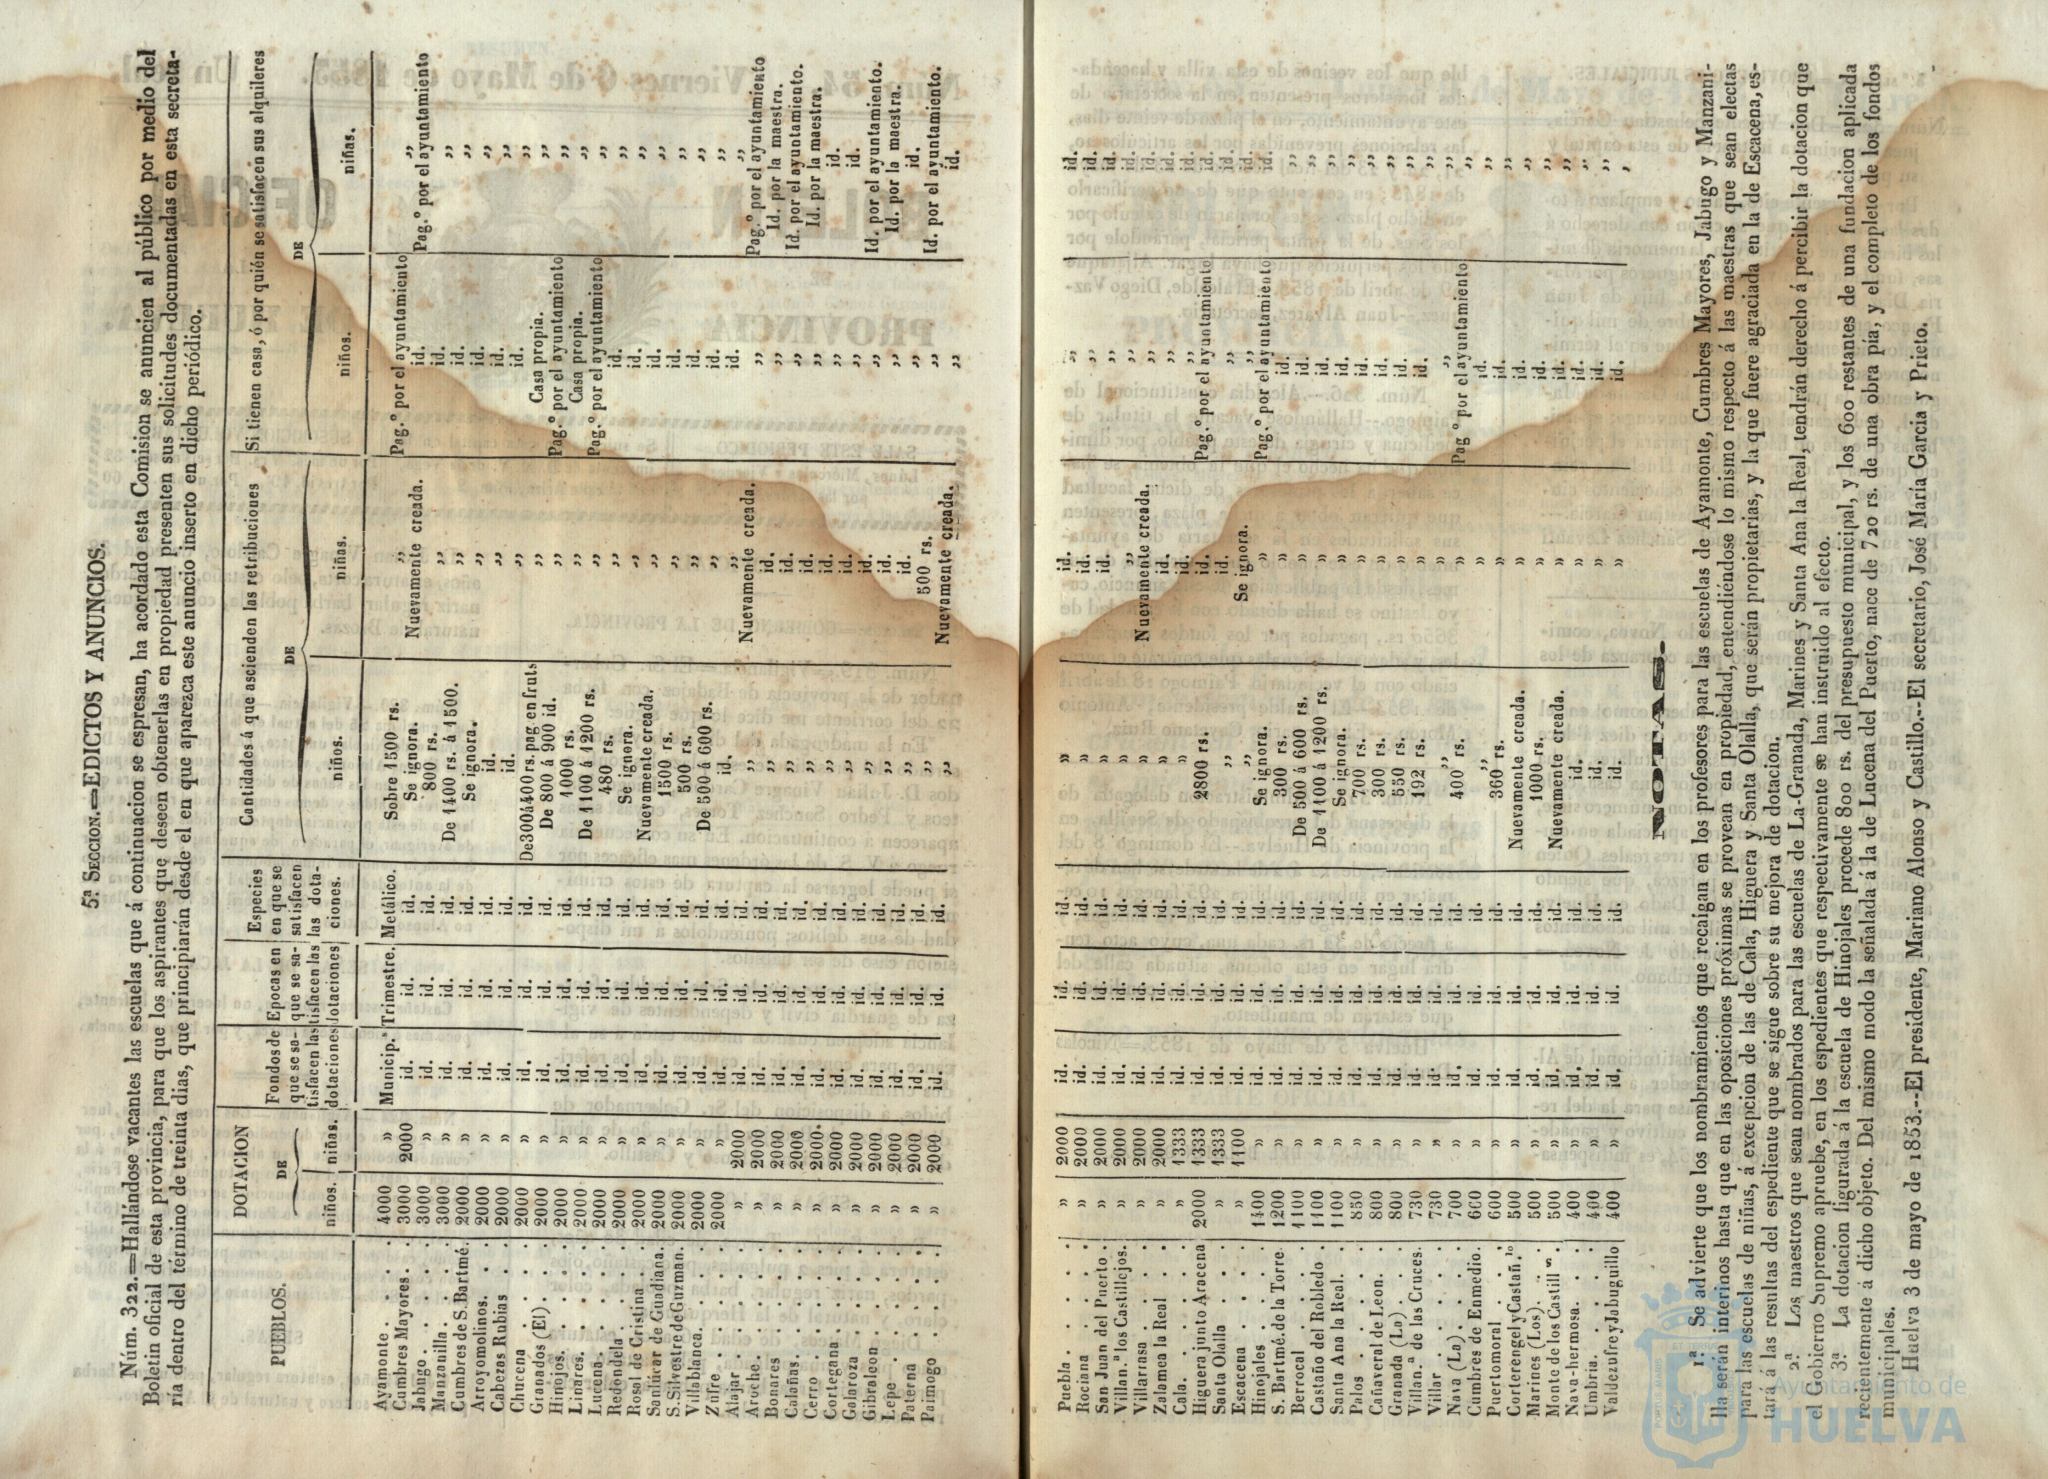 5ª SECCION.=EDICTOS Y ANUNCIOS.
Núm. 322.=Hallándose vacantes las escuelas que á continuacion se espresan, ha acordado esta Comision se anuncien al público por medio del
Boletin oficial de esta provincia, para que los aspirantes que deseen obtenerlas en propiedad presenten sus solicitudes documentadas en esta secreta-
ria dentro del término de treinta dias, que principiarán desde el en que aparezca este anuncio inserto en dicho periódico.
PUEBLOS. DOTACION DE niños. niñas. Fondos de que se satisfacen las dotaciones Epocas en que se satisfacen las dotaciones Especies en que se satisfacen las dotaciones. Cantidades á que ascienden las retribuciones DE niños. niñas. Si tienen casa, ó por quién se satisfacen sus alquileres DE niños. niñas.
Ayamonte . . . 4000 » Municip.ˢ Trimestre. Metálico. Sobre 1500 rs. ,, Pag.º por el ayuntamiento ,,
Cumbres Mayores . 3000 2000 id. id. id. Se ignora. Nuevamente creada. id. Pag.º por el ayuntamiento
Jabugo . . . . 3000 » id. id. id. 800 rs. ,, id. ,,
Manzanilla . . . 3000 » id. id. id. De 1400 rs. á 1500. ,, id. ,,
Cumbres de S. Bartmé. 2000 » id. id. id. Se ignora. ,, id. ,,
Arroyomolinos. . . 2000 » id. id. id. id. ,, id. ,,
Cabezas Rubias . . 2000 » id. id. id. id. ,, id. ,,
Chucena . . . . 2000 » id. id. id. De 300 á 400 rs. pag. en fruts ,, Casa propia. ,,
Granados (El) . . 2000 » id. id. id. De 800 á 900 id. ,, Pag.º por el ayuntamiento ,,
Hinojos. . . . 2000 » id. id. id. 1000 rs. ,, Casa propia. ,,
Linares. . . . 2000 » id. id. id. De 1100 á 1200 rs. ,, Pag.º por el ayuntamiento ,,
Lucena . . . . 2000 » id. id. id. 480 rs. ,, id. ,,
Redondela . . . 2000 » id. id. id. Se ignora. ,, id. ,,
Rosal de Cristina . 2000 » id. id. id. Nuevamente creada. ,, id. ,,
Sanlúcar de Guadiana. 2000 » id. id. id. 1500 rs. ,, id. ,,
S. Silvestre de Guzman. 2000 » id. id. id. 500 rs. ,, id. ,,
Villablanca. . . 2000 » id. id. id. De 500 á 600 rs. ,, id. ,,
Zufre . . . . 2000 » id. id. id. id. ,, id. ,,
Alajar . . . . » 2000 id. id. id. ,, Nuevamente creada. ,, Pag.º por el ayuntamiento
Aroche. . . . » 2000 id. id. id. ,, id. ,, Id. por la maestra.
Bonares . . . » 2000 id. id. id. ,, id. ,, Id. por el ayuntamiento.
Calañas. . . . » 2000 id. id. id. ,, id. ,, Id. por la maestra.
Cerro . . . . » 2000. id. id. id. ,, id. ,, id.
Cortegana . . . » 2000 id. id. id. ,, id. ,, id.
Galaroza . . . » 2000 id. id. id. ,, id. ,, Id. por el ayuntamiento.
Gibraleon . . . » 2000 id. id. id. ,, id. ,, Id. por la maestra.
Lepe . . . . » 2000 id. id. id. ,, id. ,, id.
Paterna . . . » 2000 id. id. id. ,, 500 rs. ,, Id. por el ayuntamiento.
Paimogo . . . » 2000 id. id. id. ,, Nuevamente creada. ,, id.
Puebla . . . . » 2000 id. id. id. » id. ,, id.
Rociana . . . » 2000 id. id. id. » id. ,, id.
San Juan del Puerto . » 2000 id. id. id. » id. ,, id.
Villan.ª los Castillejos. » 2000 id. id. id. » ,, ,, id.
Villarrasa . . . » 2000 id. id. id. » Nuevamente creada. ,, id.
Zalamea la Real . . » 2000 id. id. id. » id. ,, id.
Cala. . . . . » 1333 id. id. id. » id. ,, id.
Higuera junto Aracena 2000 1333 id. id. id. 2800 rs. id. Pag.º por el ayuntamiento id.
Santa Olalla . . » 1333 id. id. id. ,, id. ,, id.
Escacena . . . » 1100 id. id. id. ,, Se ignora. ,, id.
Hinojales . . . 1400 » id. id. id. Se ignora. » Pag.º por el ayuntamiento id.
S. Bartmé. de la Torre. 1200 » id. id. id. 300 rs. » id. ,,
Berrocal . . . 1100 » id. id. id. De 500 á 600 rs. » id. ,,
Castaño del Robledo . 1100 » id. id. id. De 1100 á 1200 rs. » id. ,,
Santa Ana la Real. . 1100 » id. id. id. Se ignora. » id. ,,
Palos . . . . 850 » id. id. id. 700 rs. » id. ,,
Cañaveral de Leon. . 800 » id. id. id. 300 rs. » id. ,,
Granada (La) . . 800 » id. id. id. 550 rs. » id. ,,
Villan.ª de las Cruces. 730 » id. id. id. 192 rs. » id. ,,
Villar . . . . 730 » id. id. id. ,, » ,, ,,
Nava (La) . . . 700 » id. id. id. 400 rs. » Pag º por el ayuntamiento ,,
Cumbres de Enmedio. 600 » id. id. id. ,, » id. ,,
Puertomoral . . 600 » id. id. id. 360 rs. » id. ,,
Corterengel y Castañ.ˡᵒ 500 » id. id. id. Nuevamente creada. » id. ,,
Marines (Los). . . 500 » id. id. id. 1000 rs. » id. ,,
Monte de los Castill ˢ. 500 » id. id. id. Nuevamente creada. » id. ,,
Nava-hermosa. . . 400 » id. id. id. id. » id. ,,
Umbria. . . . 400 » id. id. id. id. » id. ,,
Valdezufre y Jabuguillo 400 » id. id. id. id. » id. ,,
NOTAS.
1ª Se advierte que los nombramientos que recaigan en los profesores para las escuelas de Ayamonte, Cumbres Mayores, Jabugo y Manzani-
lla serán interinos hasta que en las oposiciones próximas se provean en propiedad, entendiéndose lo mismo respecto á las maestras que sean electas
para las escuelas de niñas, á excepcion de las de Cala, Higuera y Santa Olalla, que serán propietarias, y la que fuere agraciada en la de Escacena, es-
tará á las resultas del espediente que se sigue sobre su mejora de dotacion.
2ª Los maestros que sean nombrados para las escuelas de La-Granada, Marines y Santa Ana la Real, tendrán derecho á percibir la dotacion que
el Gobierno Supremo apruebe, en los espedientes que respectivamente se han instruido al efecto.
3ª La dotacion figurada á la escuela de Hinojales procede 800 rs. del presupuesto municipal, y los 600 restantes de una fundacion aplicada
recientemente á dicho objeto. Del mismo modo la señalada á la de Lucena del Puerto, nace de 720 rs. de una obra pía, y el completo de los fondos
municipales.
Huelva 3 de mayo de 1853.--El presidente, Mariano Alonso y Castillo.--El secretario, José María García y Prieto.
Ayuntamiento de
HUELVA